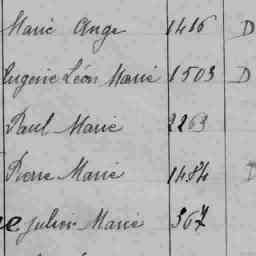 Marie Ange 1416 D
Eugénie Léon Marie 1503 D
Paul Marie 2263
Pierre Marie 1484 D
Julien Marie 367